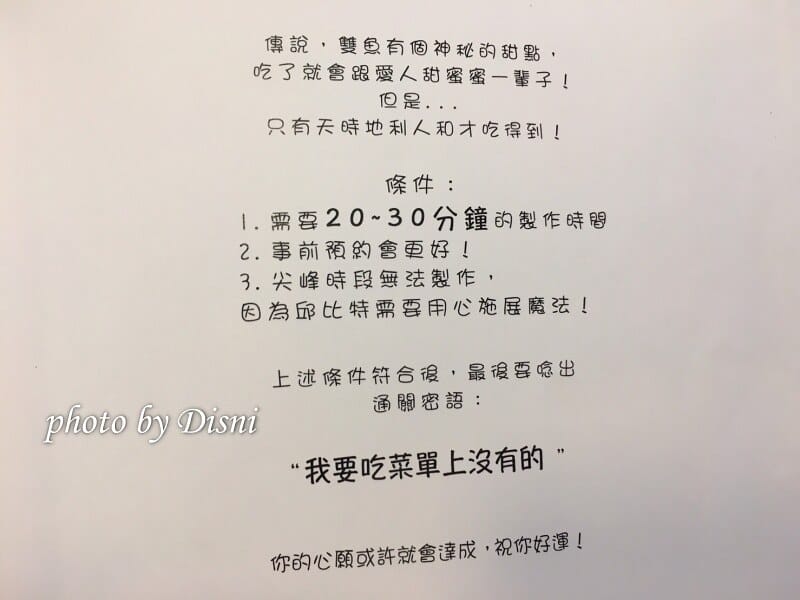 傳說，雙魚有個神秘的甜點，
吃了就會跟愛人甜蜜蜜一輩子！
但是...
只有天時地利人和才吃得到！
條件：
1. 需要20~30分鐘的製作時間
2. 事前預約會更好！
3. 尖峰時段無法製作，
因為邱比特需要用心施展魔法！
上述條件符合後，最後要唸出
通關密語：
“我要吃菜單上沒有的”
你的心願或許就會達成，祝你好運！
photo by Disni